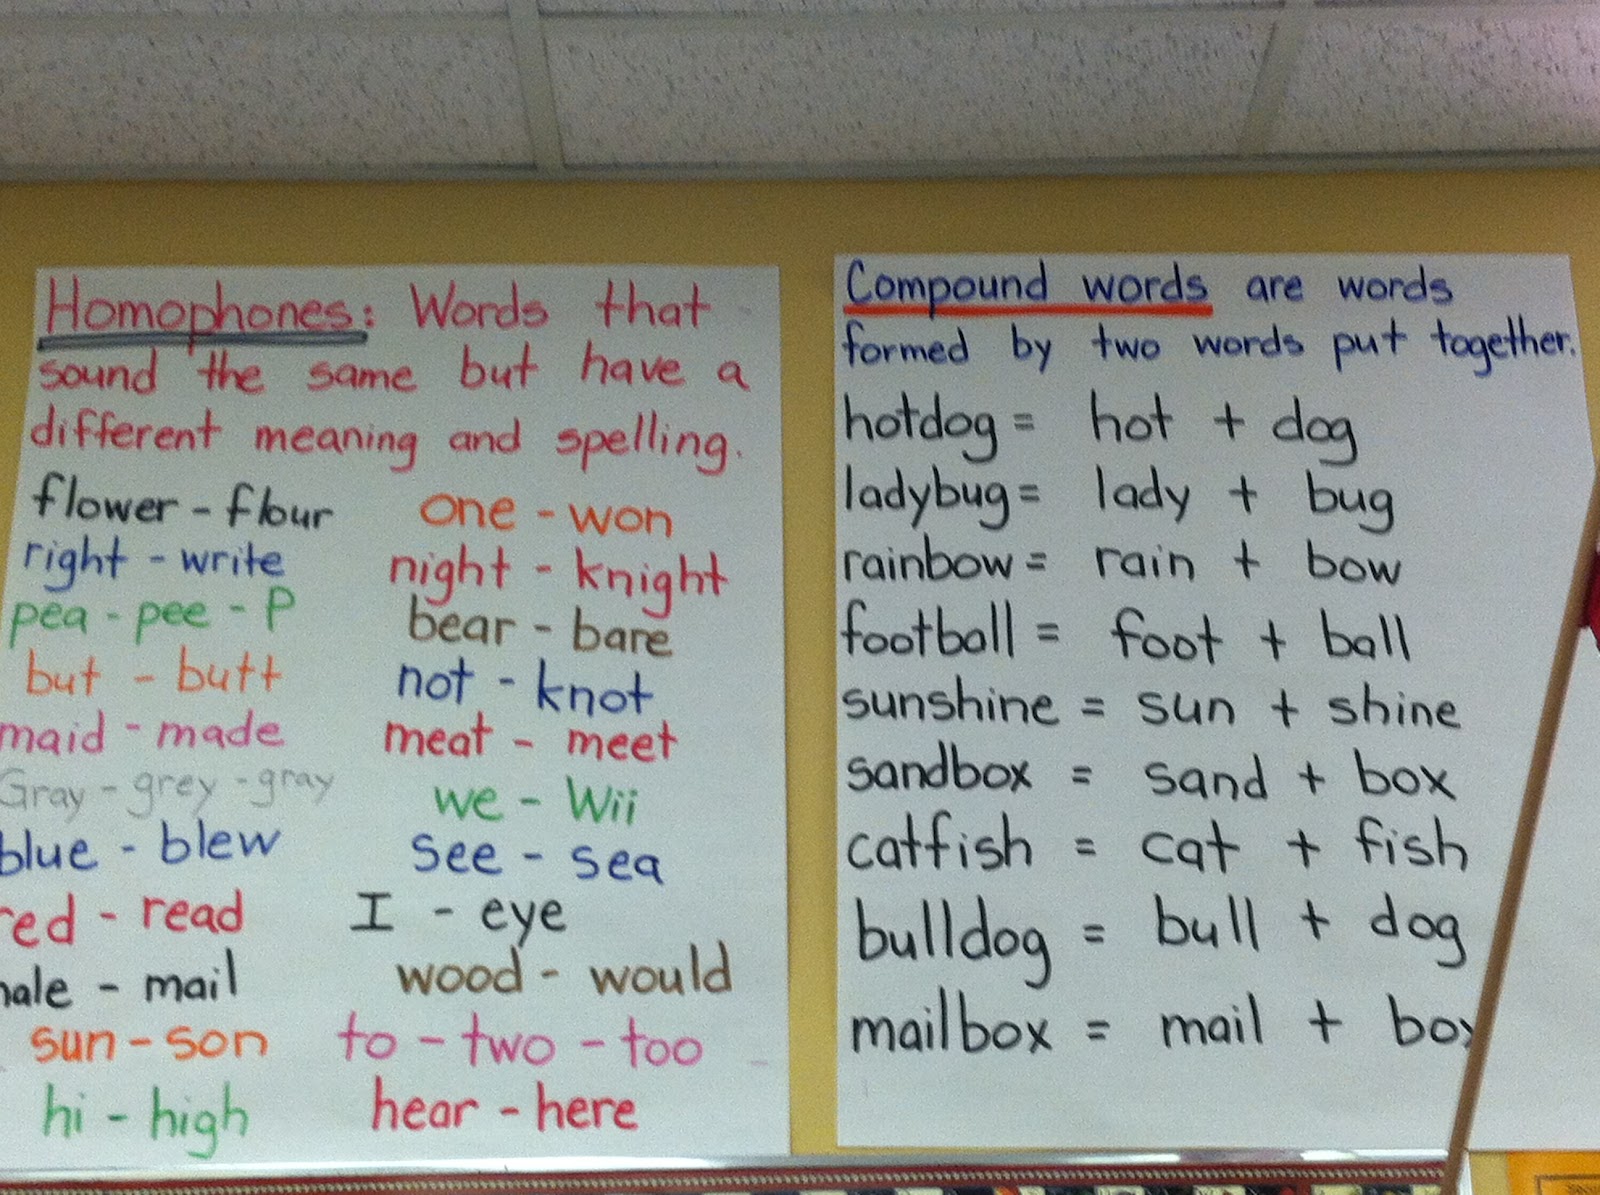 Homophones: Words that
sound the same but have a
different meaning and spelling.
flower - flour
right - write
pea - pee - P
but - butt
maid - made
Gray - grey - gray
blue - blew
red - read
male - mail
sun - son
hi - high
one - won
night - knight
bear - bare
not - knot
meat - meet
we - Wii
see - sea
I - eye
wood - would
to - two - too
hear - here
Compound words are words
formed by two words put together.
hotdog = hot + dog
ladybug = lady + bug
rainbow = rain + bow
football = foot + ball
sunshine = sun + shine
sandbox = sand + box
catfish = cat + fish
bulldog = bull + dog
mailbox = mail + box